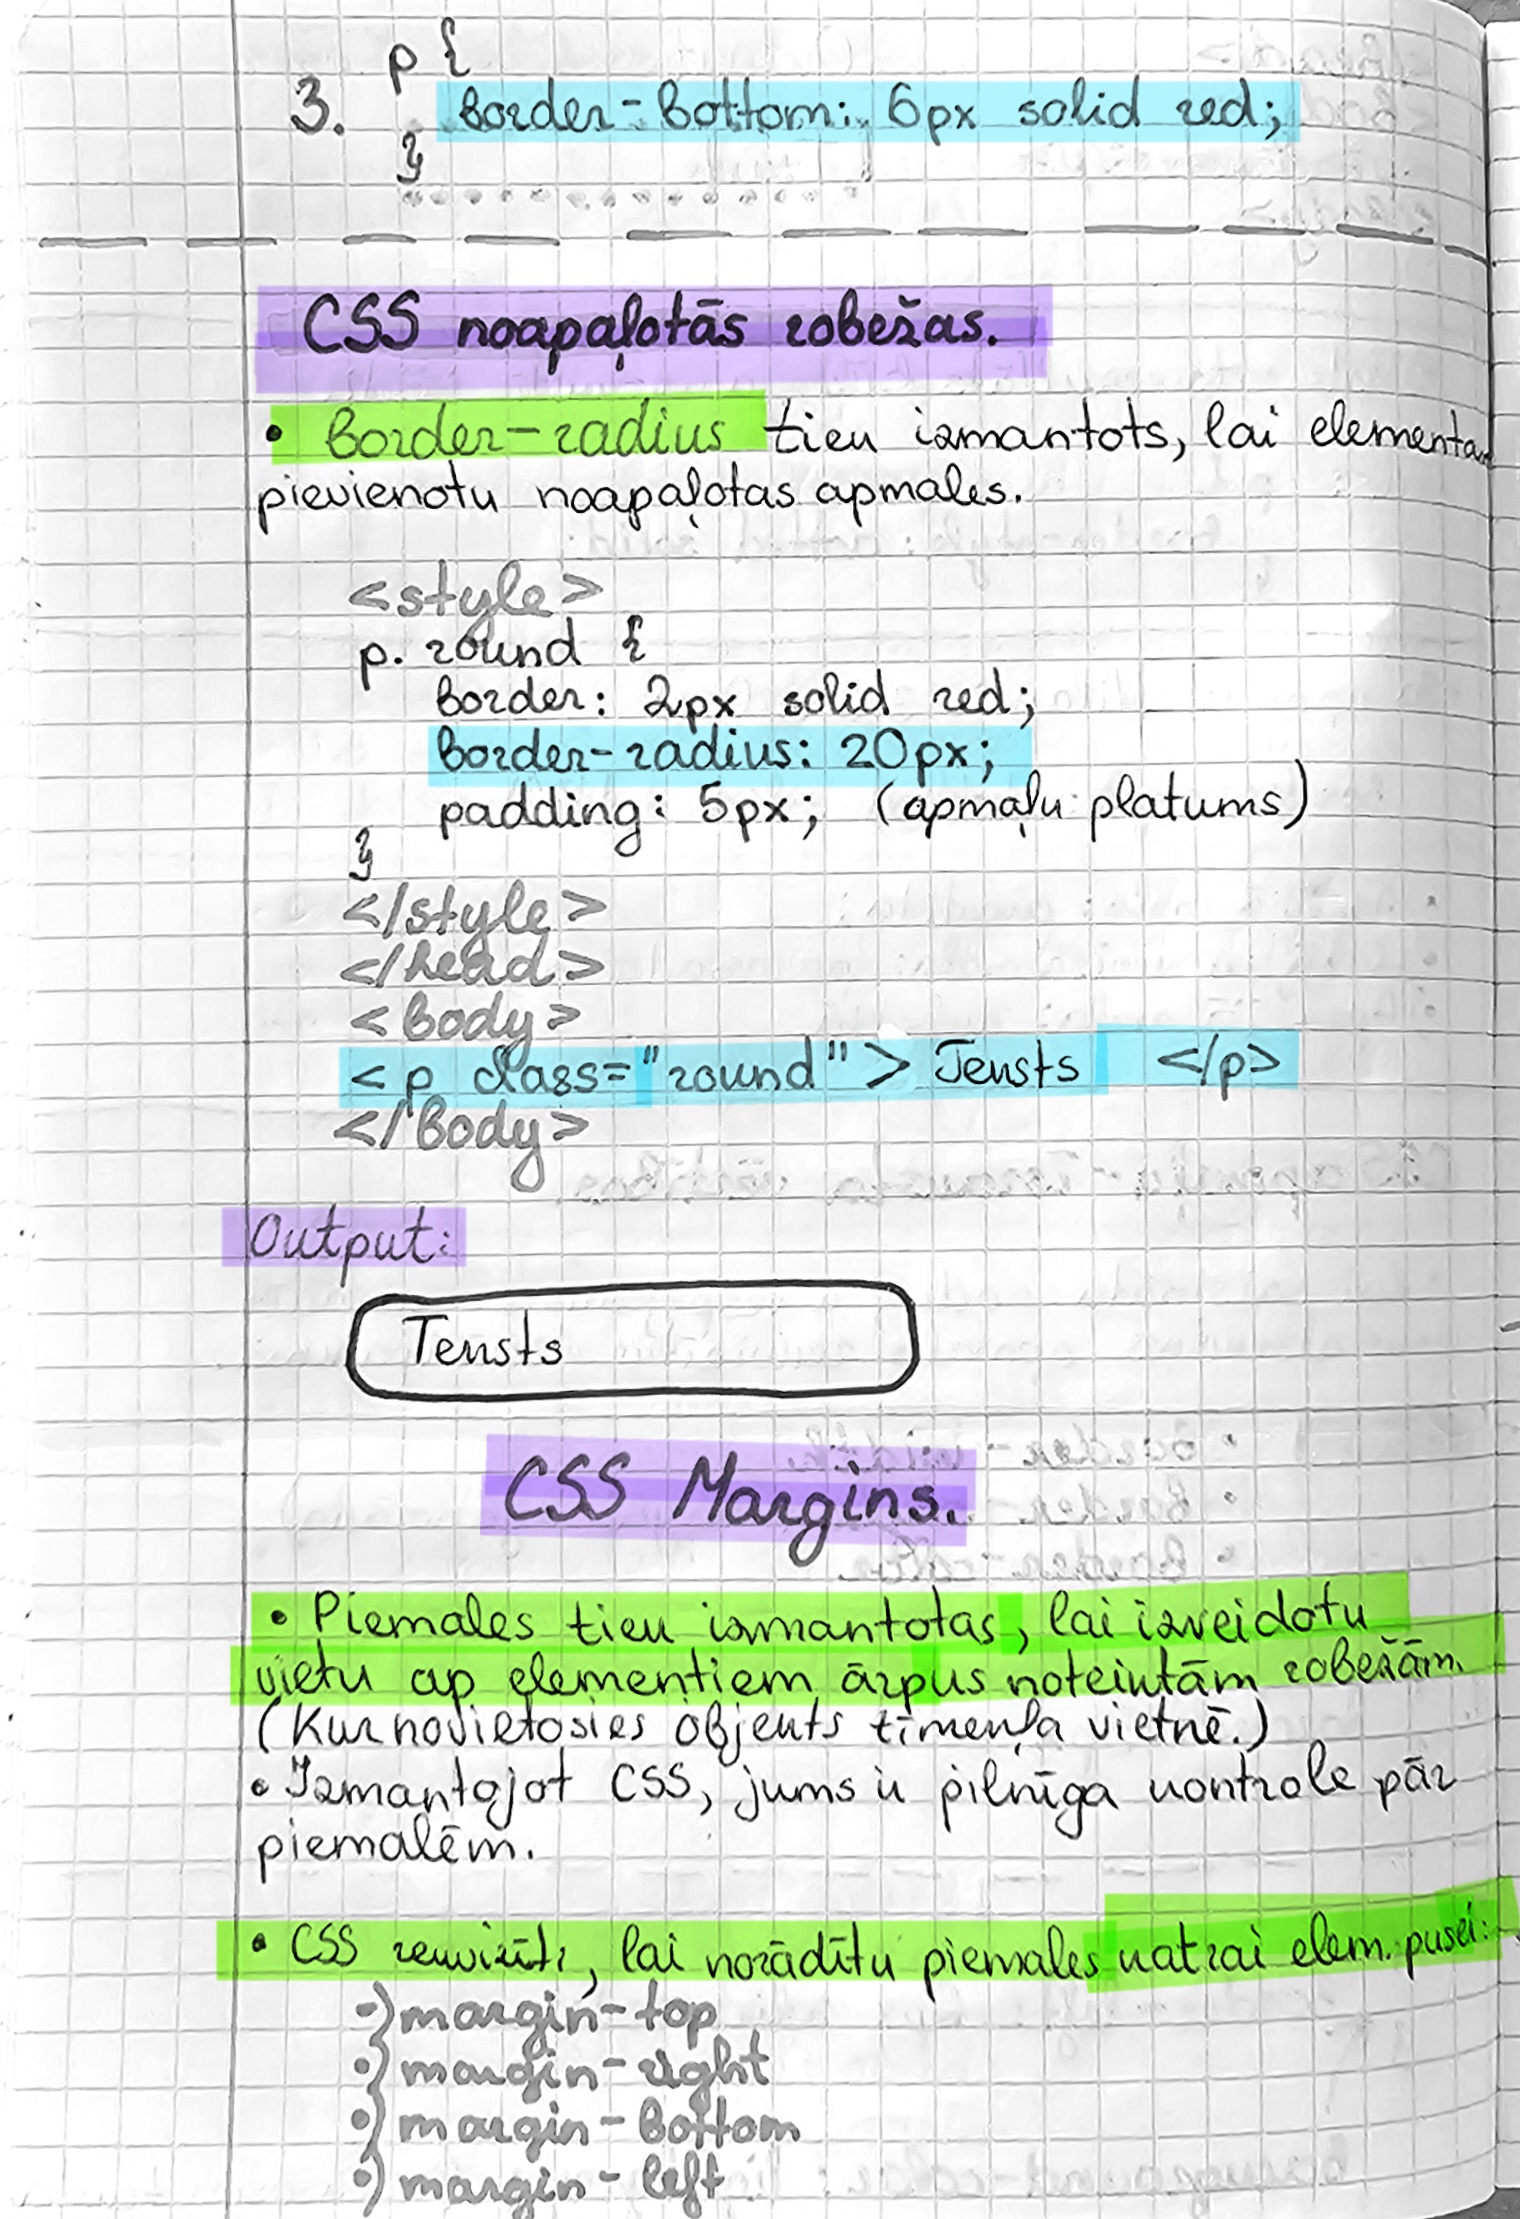 p {
3. border-bottom: 6px solid red;
}
CSS noapaļotās robežas.
• Border-radius tiek izmantots, lai elementam
pievienotu noapaļotas apmales.
<style>
p. round {
border: 2px solid red;
border-radius: 20px;
padding: 5px; (apmaļu platums)
}
</style>
</head>
<body>
<p class="round"> Teksts </p>
</body>
Output:
Teksts
CSS Margins.
• Piemales tiek izmantotas, lai izveidotu
vietu ap elementiem ārpus noteiktām robežām.
(Kur novietosies objekts tīmekļa vietnē.)
• Izmantojot CSS, jums ir pilnīga kontrole pār
piemalēm.
• CSS rekvizīti, lai norādītu piemales katrai elem. pusei:
•) margin-top
•) margin-right
•) margin-bottom
•) margin-left